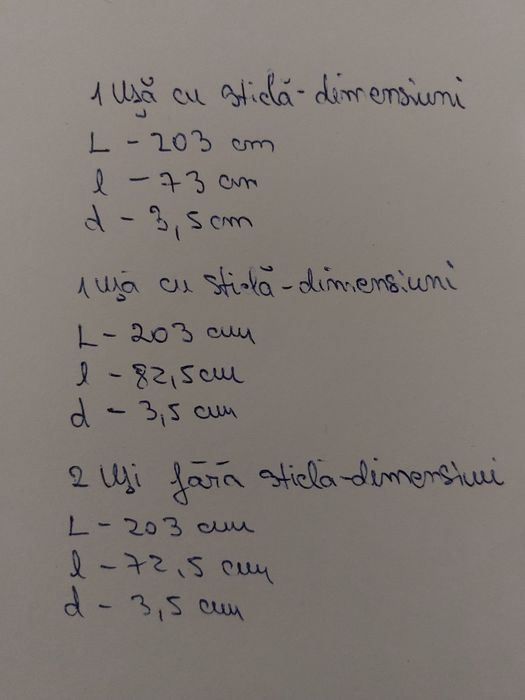 1 Ușă cu sticlă - dimensiuni
L - 203 cm
l - 73 cm
d - 3,5 cm
1 ușă cu sticlă - dimensiuni
L - 203 cm
l - 82,5 cm
d - 3,5 cm
2 Uși fără sticlă - dimensiuni
L - 203 cm
l - 72,5 cm
d - 3,5 cm